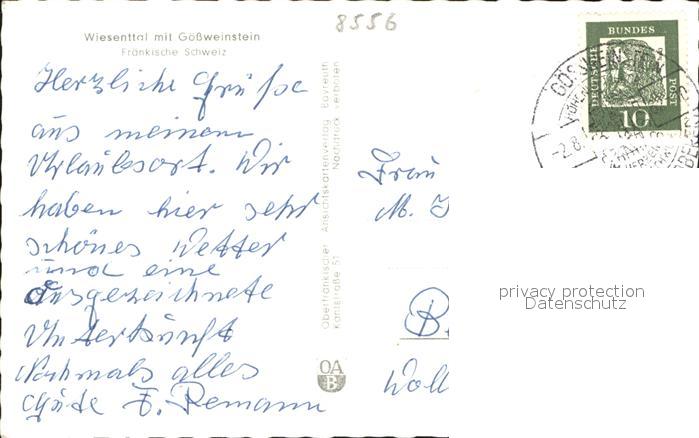 8556
Wiesenttal mit Gößweinstein
Fränkische Schweiz
Herzliche Grüße
aus meinem
Urlaubsort. Wir
haben hier sehr
schönes Wetter
und eine
ausgezeichnete
Unterkunft
Nochmals alles
Gute F. Remann
Oberfränkischer Ansichtskartenverlag Bayreuth
Karlstraße 51 Nachdruck verboten
OA
B
DEUTSCHE
BUNDES
POST
10
-2.8.
Frau
M.
B.
Woll
privacy protection
Datenschutz